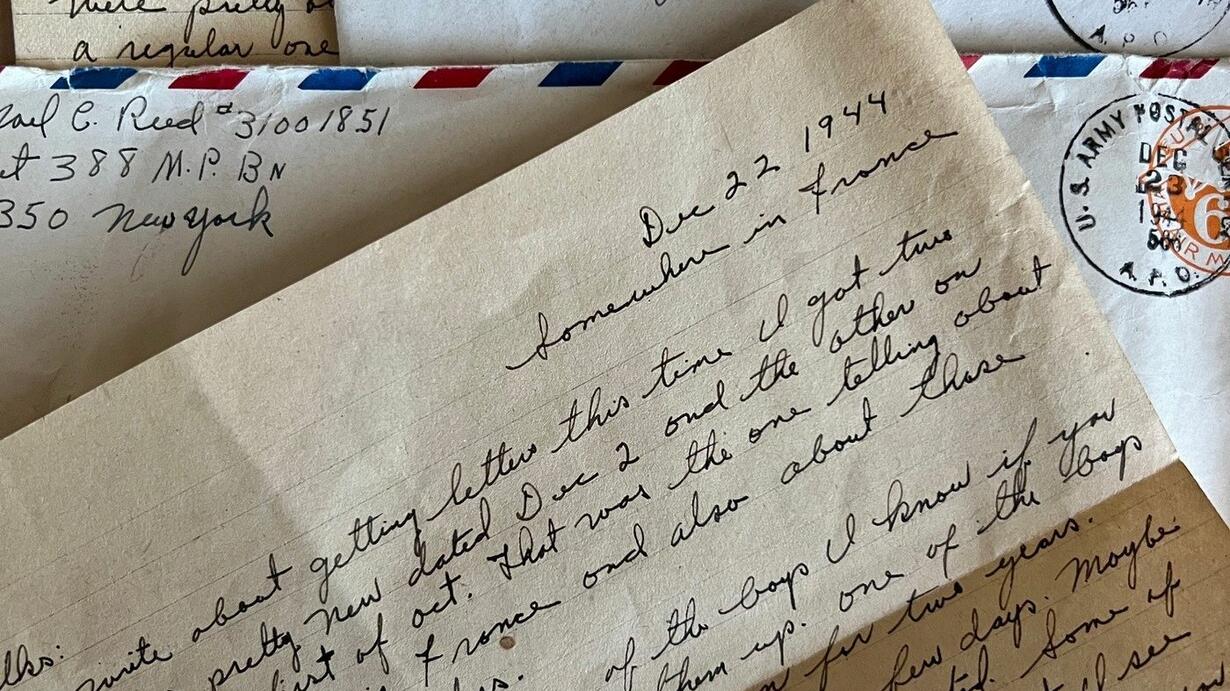 were pretty
a regular one
A.P.O.
C. Reed #31001851
388 M.P. Bn
350 New York
U.S. ARMY POSTAL
DEC
23
1944
A.P.O.
6
Dec 22 1944
Somewhere in France
write about getting letters this time I got two
pretty new dated Dec 2 and the other on
of oct. That was the one telling about
France and also about those
of the boys I know if you
them up. one of the boys
for two years.
few days. Maybe
Some of
see